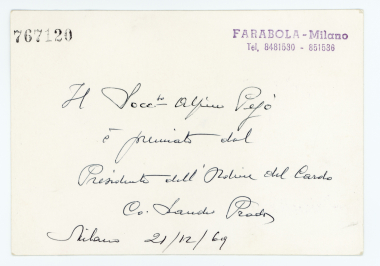 767120
FARABOLA - Milano
Tel. 8481530 - 851536
Il Socc.to Alpino Pejo
è premiato dal
Presidente dell'Ordine del Cardo
Co. Sandro Prada
Milano 21/12/69